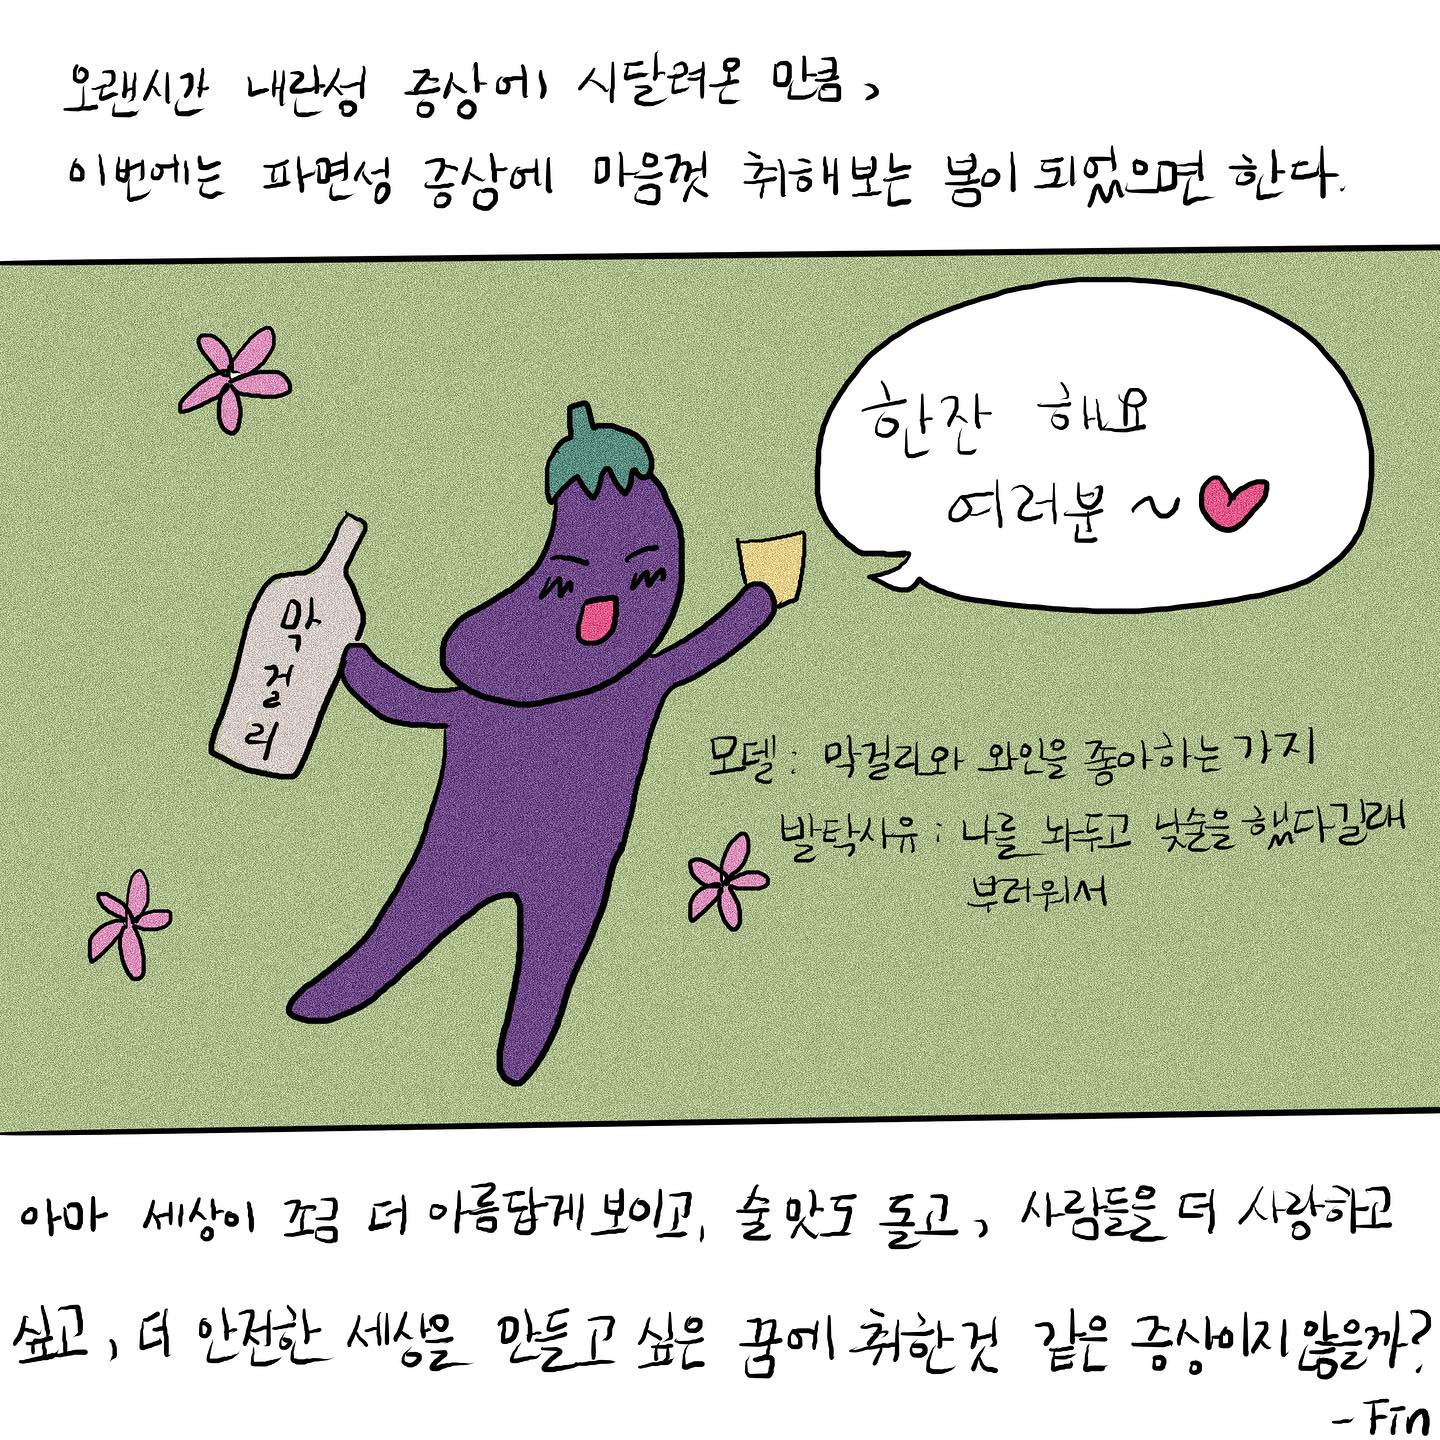 오랜시간 내란성 증상에 시달려온 만큼,
이번에는 파면성 증상에 마음껏 취해보는 봄이 되었으면 한다.
한잔 해요
여러분~♥
막걸리
모델: 막걸리와 와인을 좋아하는 가지
발탁사유: 나를 놔두고 낮술을 했다길래
부러워서
아마 세상이 조금 더 아름답게 보이고, 술맛도 돌고, 사람들을 더 사랑하고
싶고, 더 안전한 세상을 만들고 싶은 꿈에 취한것 같은 증상이지 않을까?
- Fin